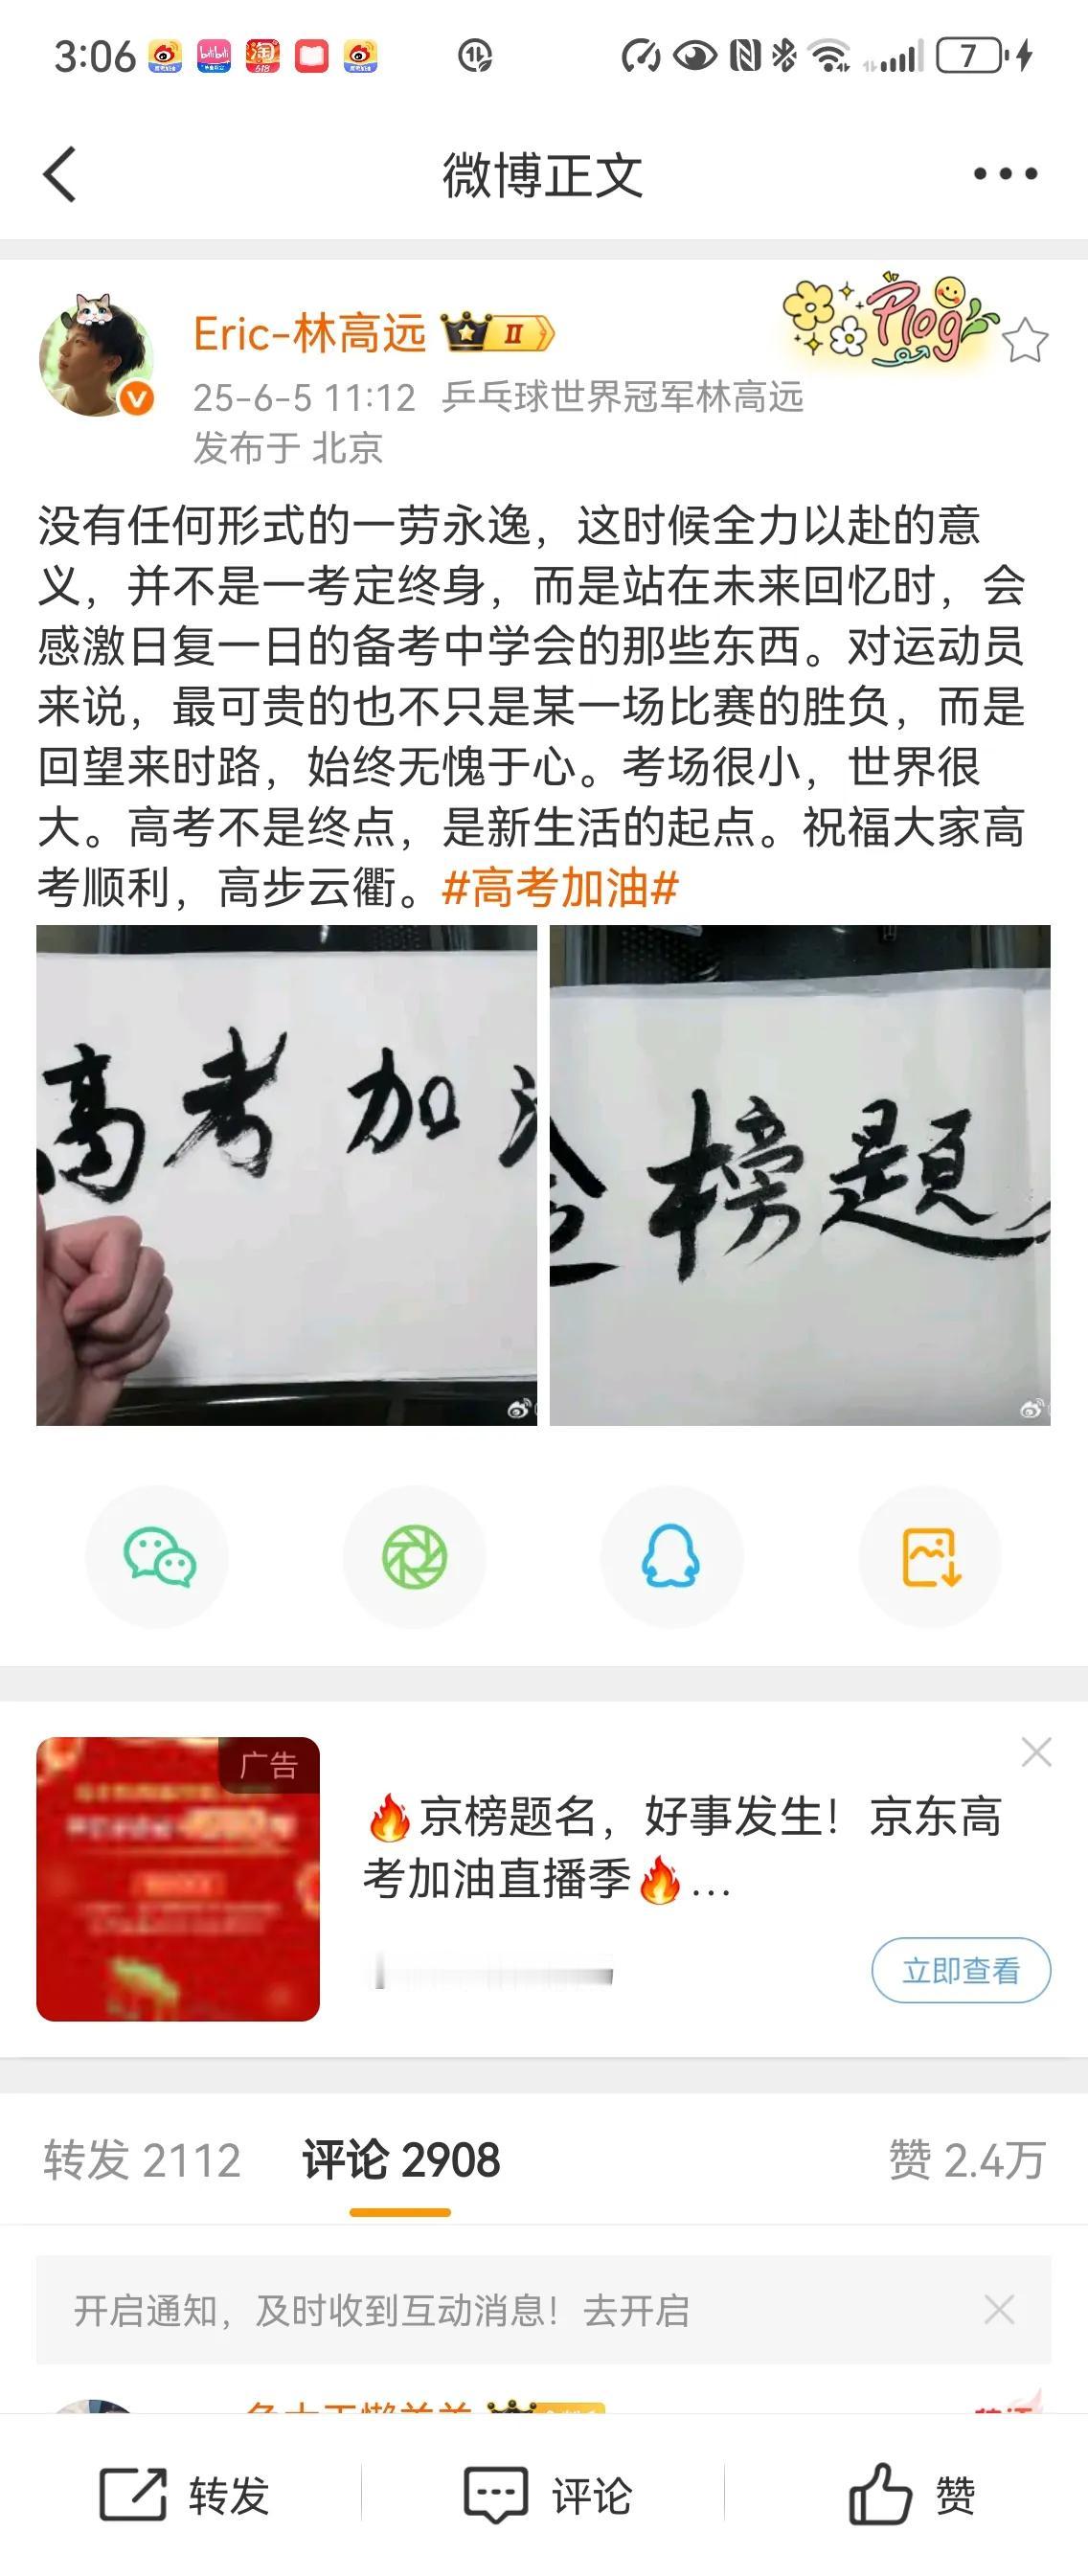 3:06
7
微博正文
Eric-林高远 II
Plog
25-6-5 11:12 乒乓球世界冠军林高远
发布于 北京
没有任何形式的一劳永逸，这时候全力以赴的意
义，并不是一考定终身，而是站在未来回忆时，会
感激日复一日的备考中学会的那些东西。对运动员
来说，最可贵的也不只是某一场比赛的胜负，而是
回望来时路，始终无愧于心。考场很小，世界很
大。高考不是终点，是新生活的起点。祝福大家高
考顺利，高步云衢。#高考加油#
高考加
榜题
广告
🔥京榜题名，好事发生！京东高
考加油直播季🔥...
立即查看
转发 2112 评论 2908 赞 2.4万
开启通知，及时收到互动消息！去开启
转发 评论 赞